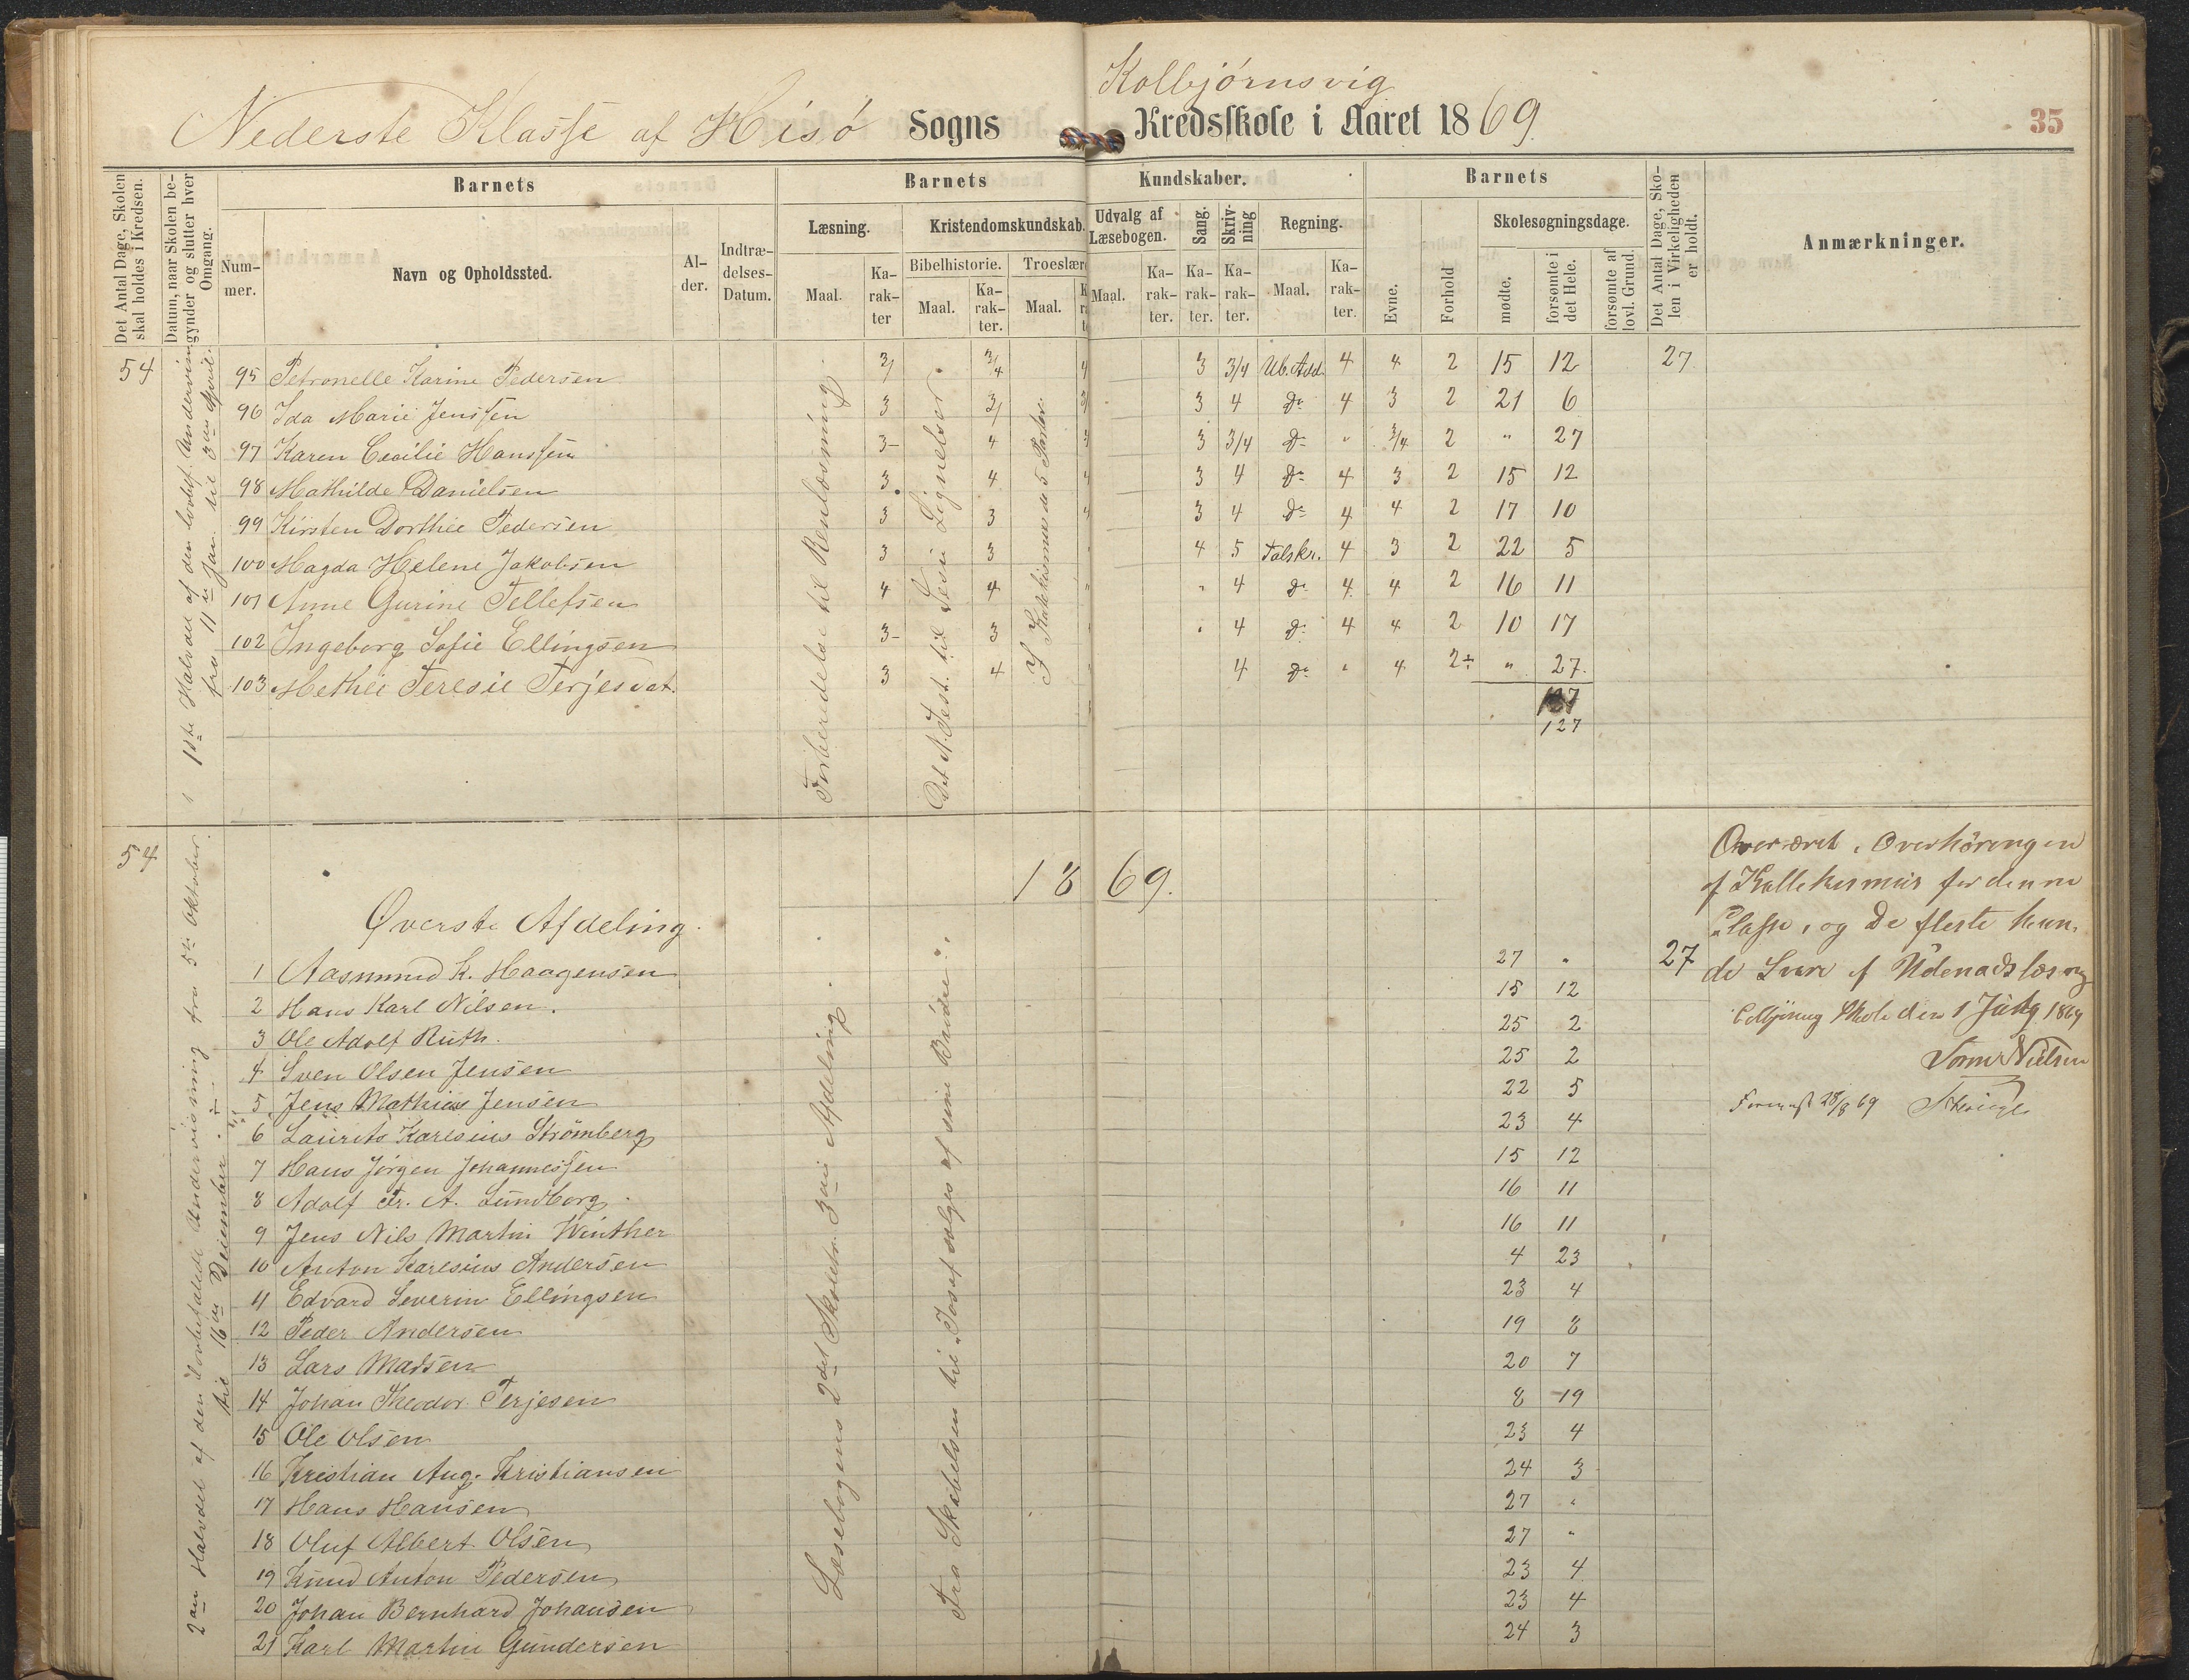 Kolbjørnsvig
Nederste Klasse af Hisø Sogns Kredsskole i Aaret 1869. 35
Det Antal Dage, Skolen skal holdes i Kredsen.
Datum, naar Skolen begynder og slutter hver Omgang.
Barnets
Nummer.
Navn og Opholdssted.
Alder.
Indtrædelses-Datum.
Barnets Kundskaber.
Læsning.
Maal.
Karakter
Kristendomskundskab.
Bibelhistorie.
Maal.
Karakter.
Troeslære
Maal.
Udvalg af Læsebogen.
Maal.
Karakter.
Sang.
Karakter.
Skrivning
Karakter.
Regning.
Maal.
Karakter.
Barnets
Evne.
Forhold
Skolesøgningsdage.
mødte.
forsømte i det Hele.
forsømte af lovl. Grund.
Det Antal Dage, Skolen i Virkeligheden er holdt.
Anmærkninger.
54
1ste Halvdel af den lovbef. Undervisning
fra 11te Jan. til 3die April.
Forberedelse til Renlæsning.
Det N. Test. til Jesu Lignelser.
I Katekismus ad 5 Parter.
95 Petronelle Karine Pedersen 3/ 3/4 3 3/4 Ub. Add. 4 4 2 15 12 27
96 Ida Marie Jenssen 3 3/ 3 4 do 4 3 2 21 6
97 Karen Cecilie Hanssen 3- 4 3 3/4 do " 3/4 2 " 27
98 Mathilde Danielsen 3 4 3 4 do 4 3 2 15 12
99 Kirsten Dorthee Pedersen 3 3 3 4 do 4 4 2 17 10
100 Magda Helene Jakobsen 3 3 4 5 Talskr. 4 3 2 22 5
101 Anne Gurine Tellefsen 4 4 " 4 do 4 4 2 16 11
102 Ingeborg Sofie Ellingsen 3- 3 " 4 do 4 4 2 10 17
103 Methee Teresie Terjesdat. 3 4 4 do " 4 2÷ " 27.
127
54
2den Halvdel af den lovbefalede Undervisning fra 5te Oktober
til 16de Decimber.
1869.
Øverste Afdeling.
Læsebogens 2det Skoletr. 3die Afdeling.
Fra Skabelsen til "Josef sælges af sine Brødre".
1 Aasmund K. Haagensen 27 " 27
2 Hans Karl Nilsen. 15 12
3 Ole Adolf Ruth. 25 2
4 Sven Olsen Jensen 25 2
5 Jens Mathias Jensen 22 5
6 Laurits Karlsius Strømberg 23 4
7 Hans Jørgen Johannessen 15 12
8 Adolf Fr. A. Lundborg. 16 11
9 Jens Nils Martin Winther 16 11
10 Anton Karlsius Andersen 4 23
11 Edvard Severin Ellingsen 23 4
12 Peder Andersen 19 8
13 Lars Madsen 20 7
14 Johan Theodor Terjesen 8 19
15 Ole Olsen 23 4
16 Kristian Aug. Kristiansen 24 3
17 Hans Hansen 27 "
18 Oluf Albert Olsen 27 "
19 Knud Anton Pedersen 23 4
20 Johan Bernhard Johansen 23 4
21 Karl Martin Gundersen 24 3
Overværet Overhøringen
af Kattekismus for denne
Classe, og De fleste kun-
de Svare
Skole den 1 1869
Nielsen
28/8 69